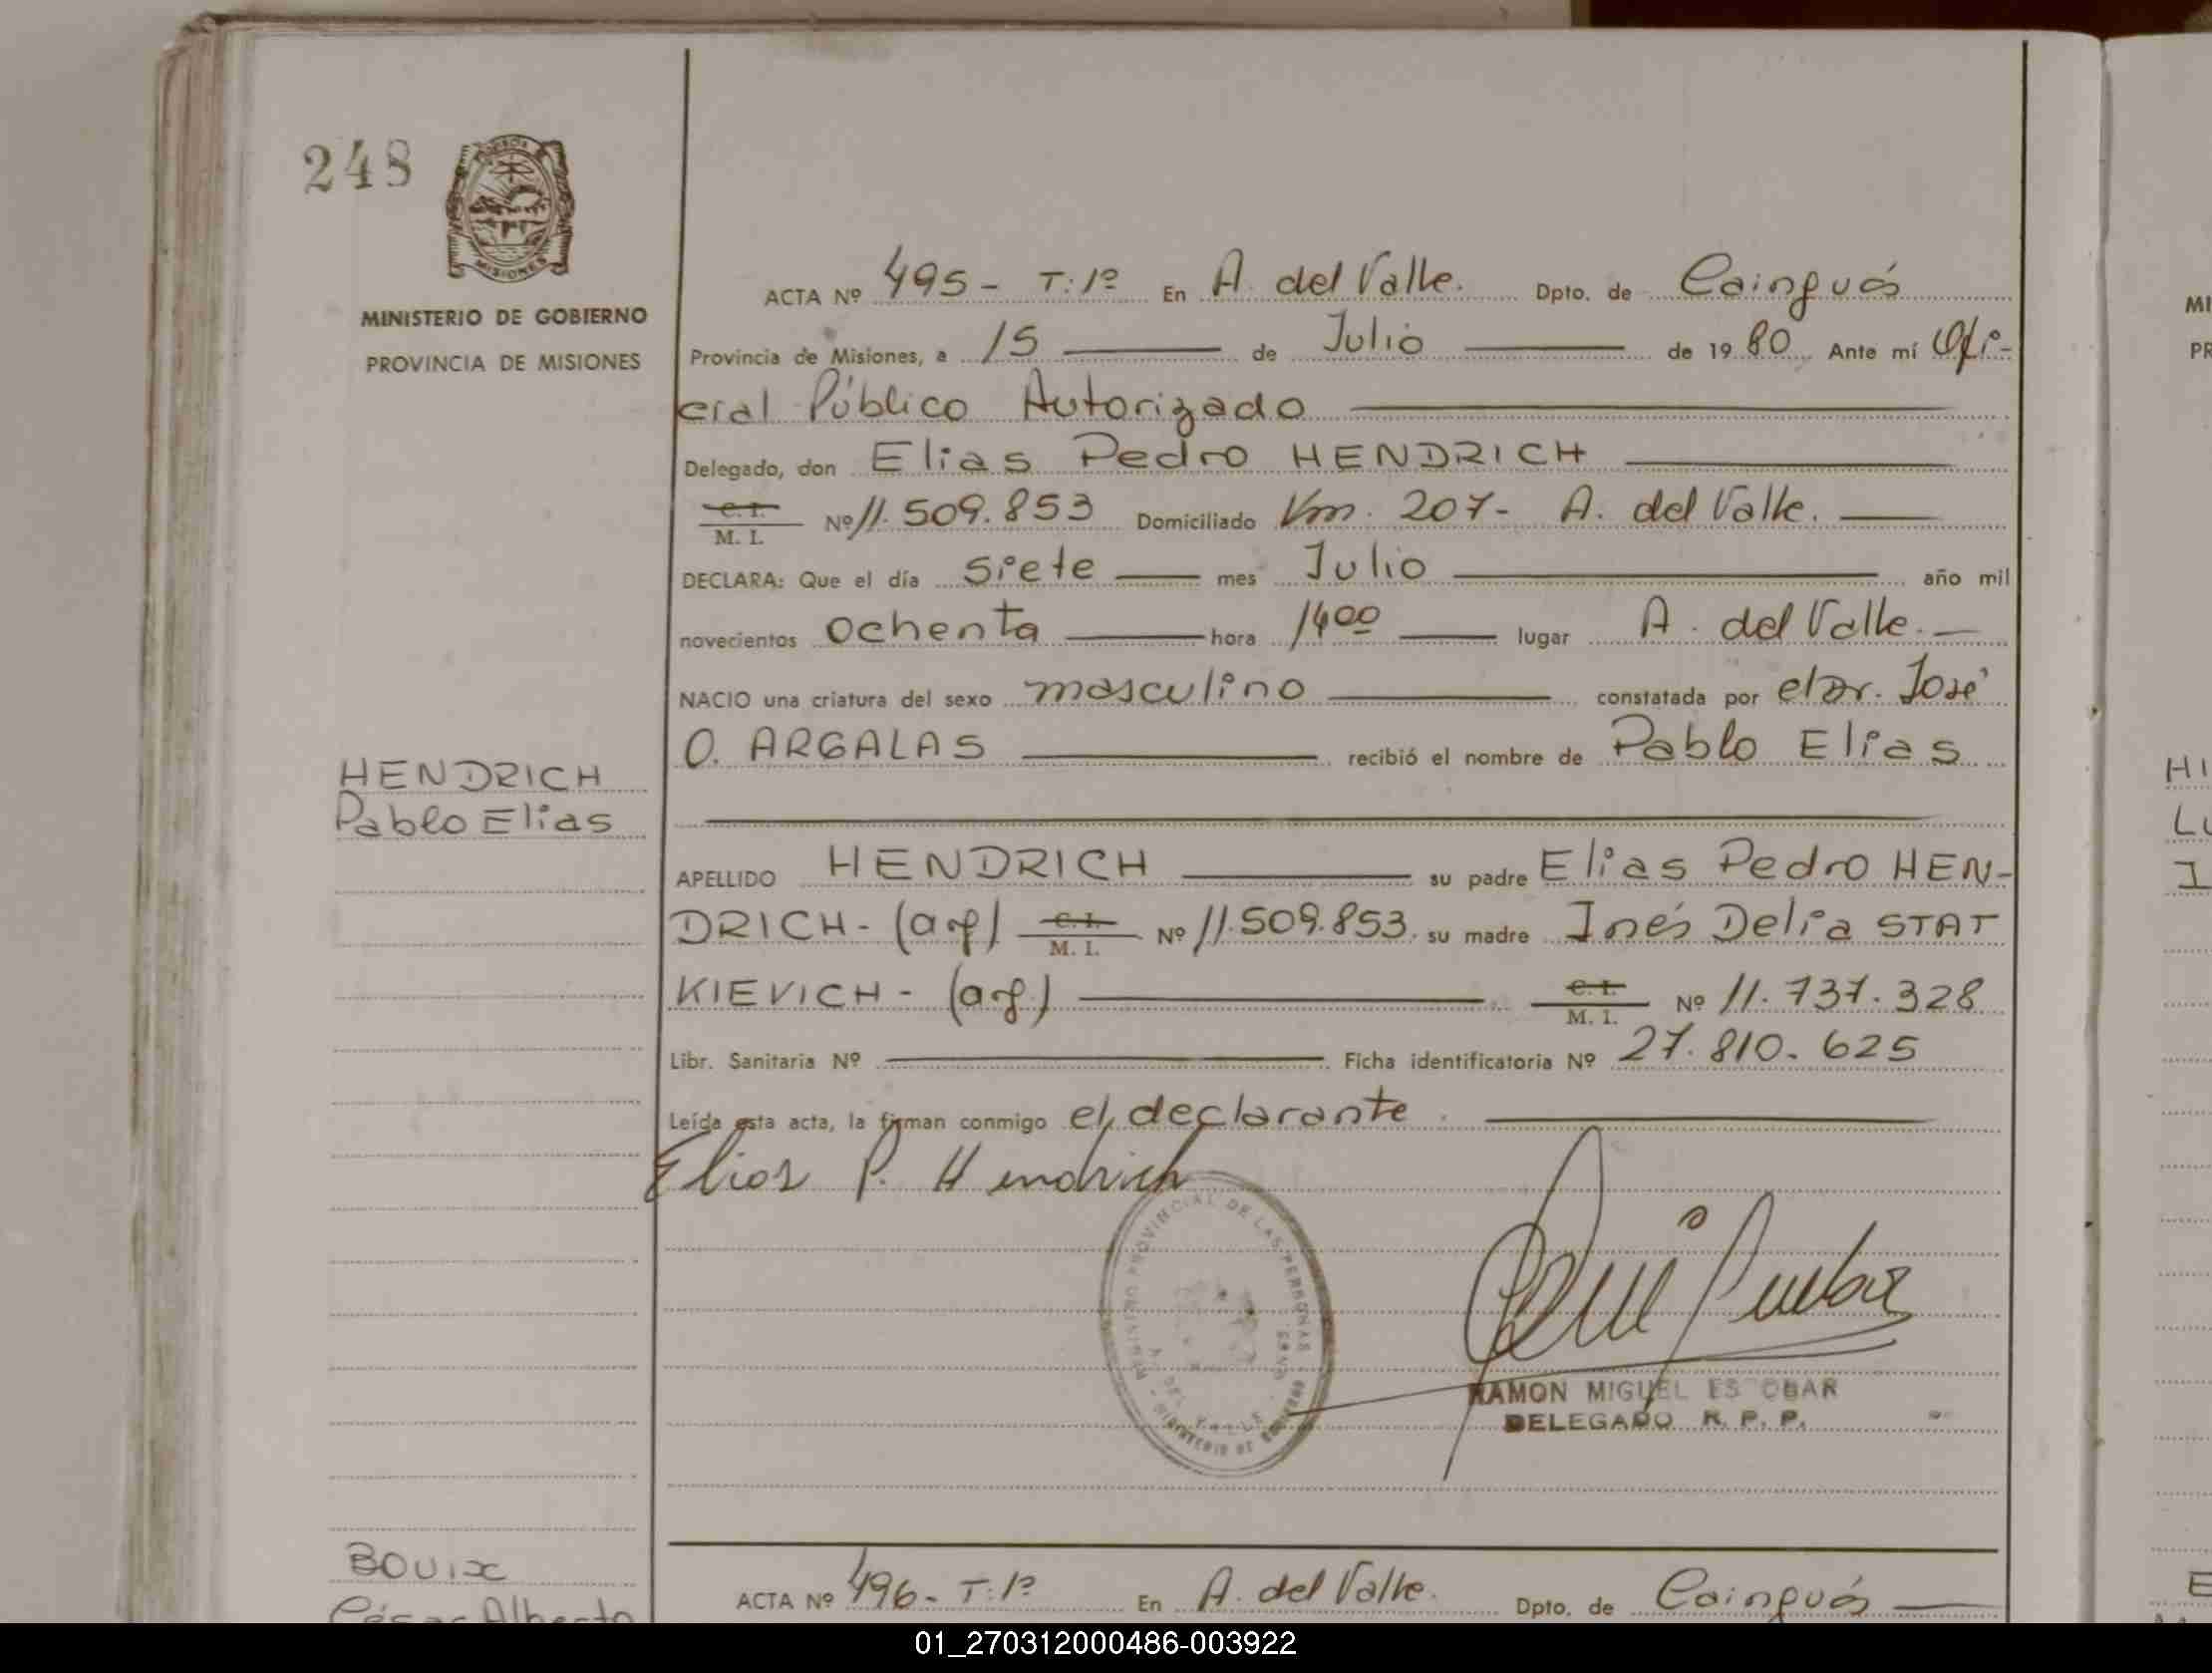 248
MISIONES
MINISTERIO DE GOBIERNO
PROVINCIA DE MISIONES
ACTA Nº 495- T:1º En A. del Valle. Dpto. de Cainguás
Provincia de Misiones, a 15 de Julio de 1980 Ante mí Ofi-
cial Público Autorizado
Delegado, don Elias Pedro HENDRICH
C. I.
M. I. Nº 11.509.853 Domiciliado Km. 207- A. del Valle.
DECLARA: Que el día siete mes Julio año mil
novecientos ochenta hora 1400 lugar A. del Valle.
NACIO una criatura del sexo masculino constatada por el Dr. José
O. ARGALAS recibió el nombre de Pablo Elias
HENDRICH
Pablo Elias
APELLIDO HENDRICH su padre Elias Pedro HEN-
DRICH- (arg) C. I. M. I. Nº 11.509.853. su madre Inés Delia STAT
KIEVICH- (arg.) C. I. M. I. Nº 11.737.328
Libr. Sanitaria Nº Ficha identificatoria Nº 27.810.625
Leída esta acta, la firman conmigo el declarante.
Elias P. Hendrich
REGISTRO PROVINCIAL DE LAS PERSONAS
A. DEL VALLE
MINISTERIO DE GOBIERNO
RAMON MIGUEL ESCOBAR
DELEGADO R. P. P.
BOUIX
César Alberto
ACTA Nº 496- T:1º En A. del Valle. Dpto. de Cainguás
MI
PR
HI
LU
I
E
01_270312000486-003922